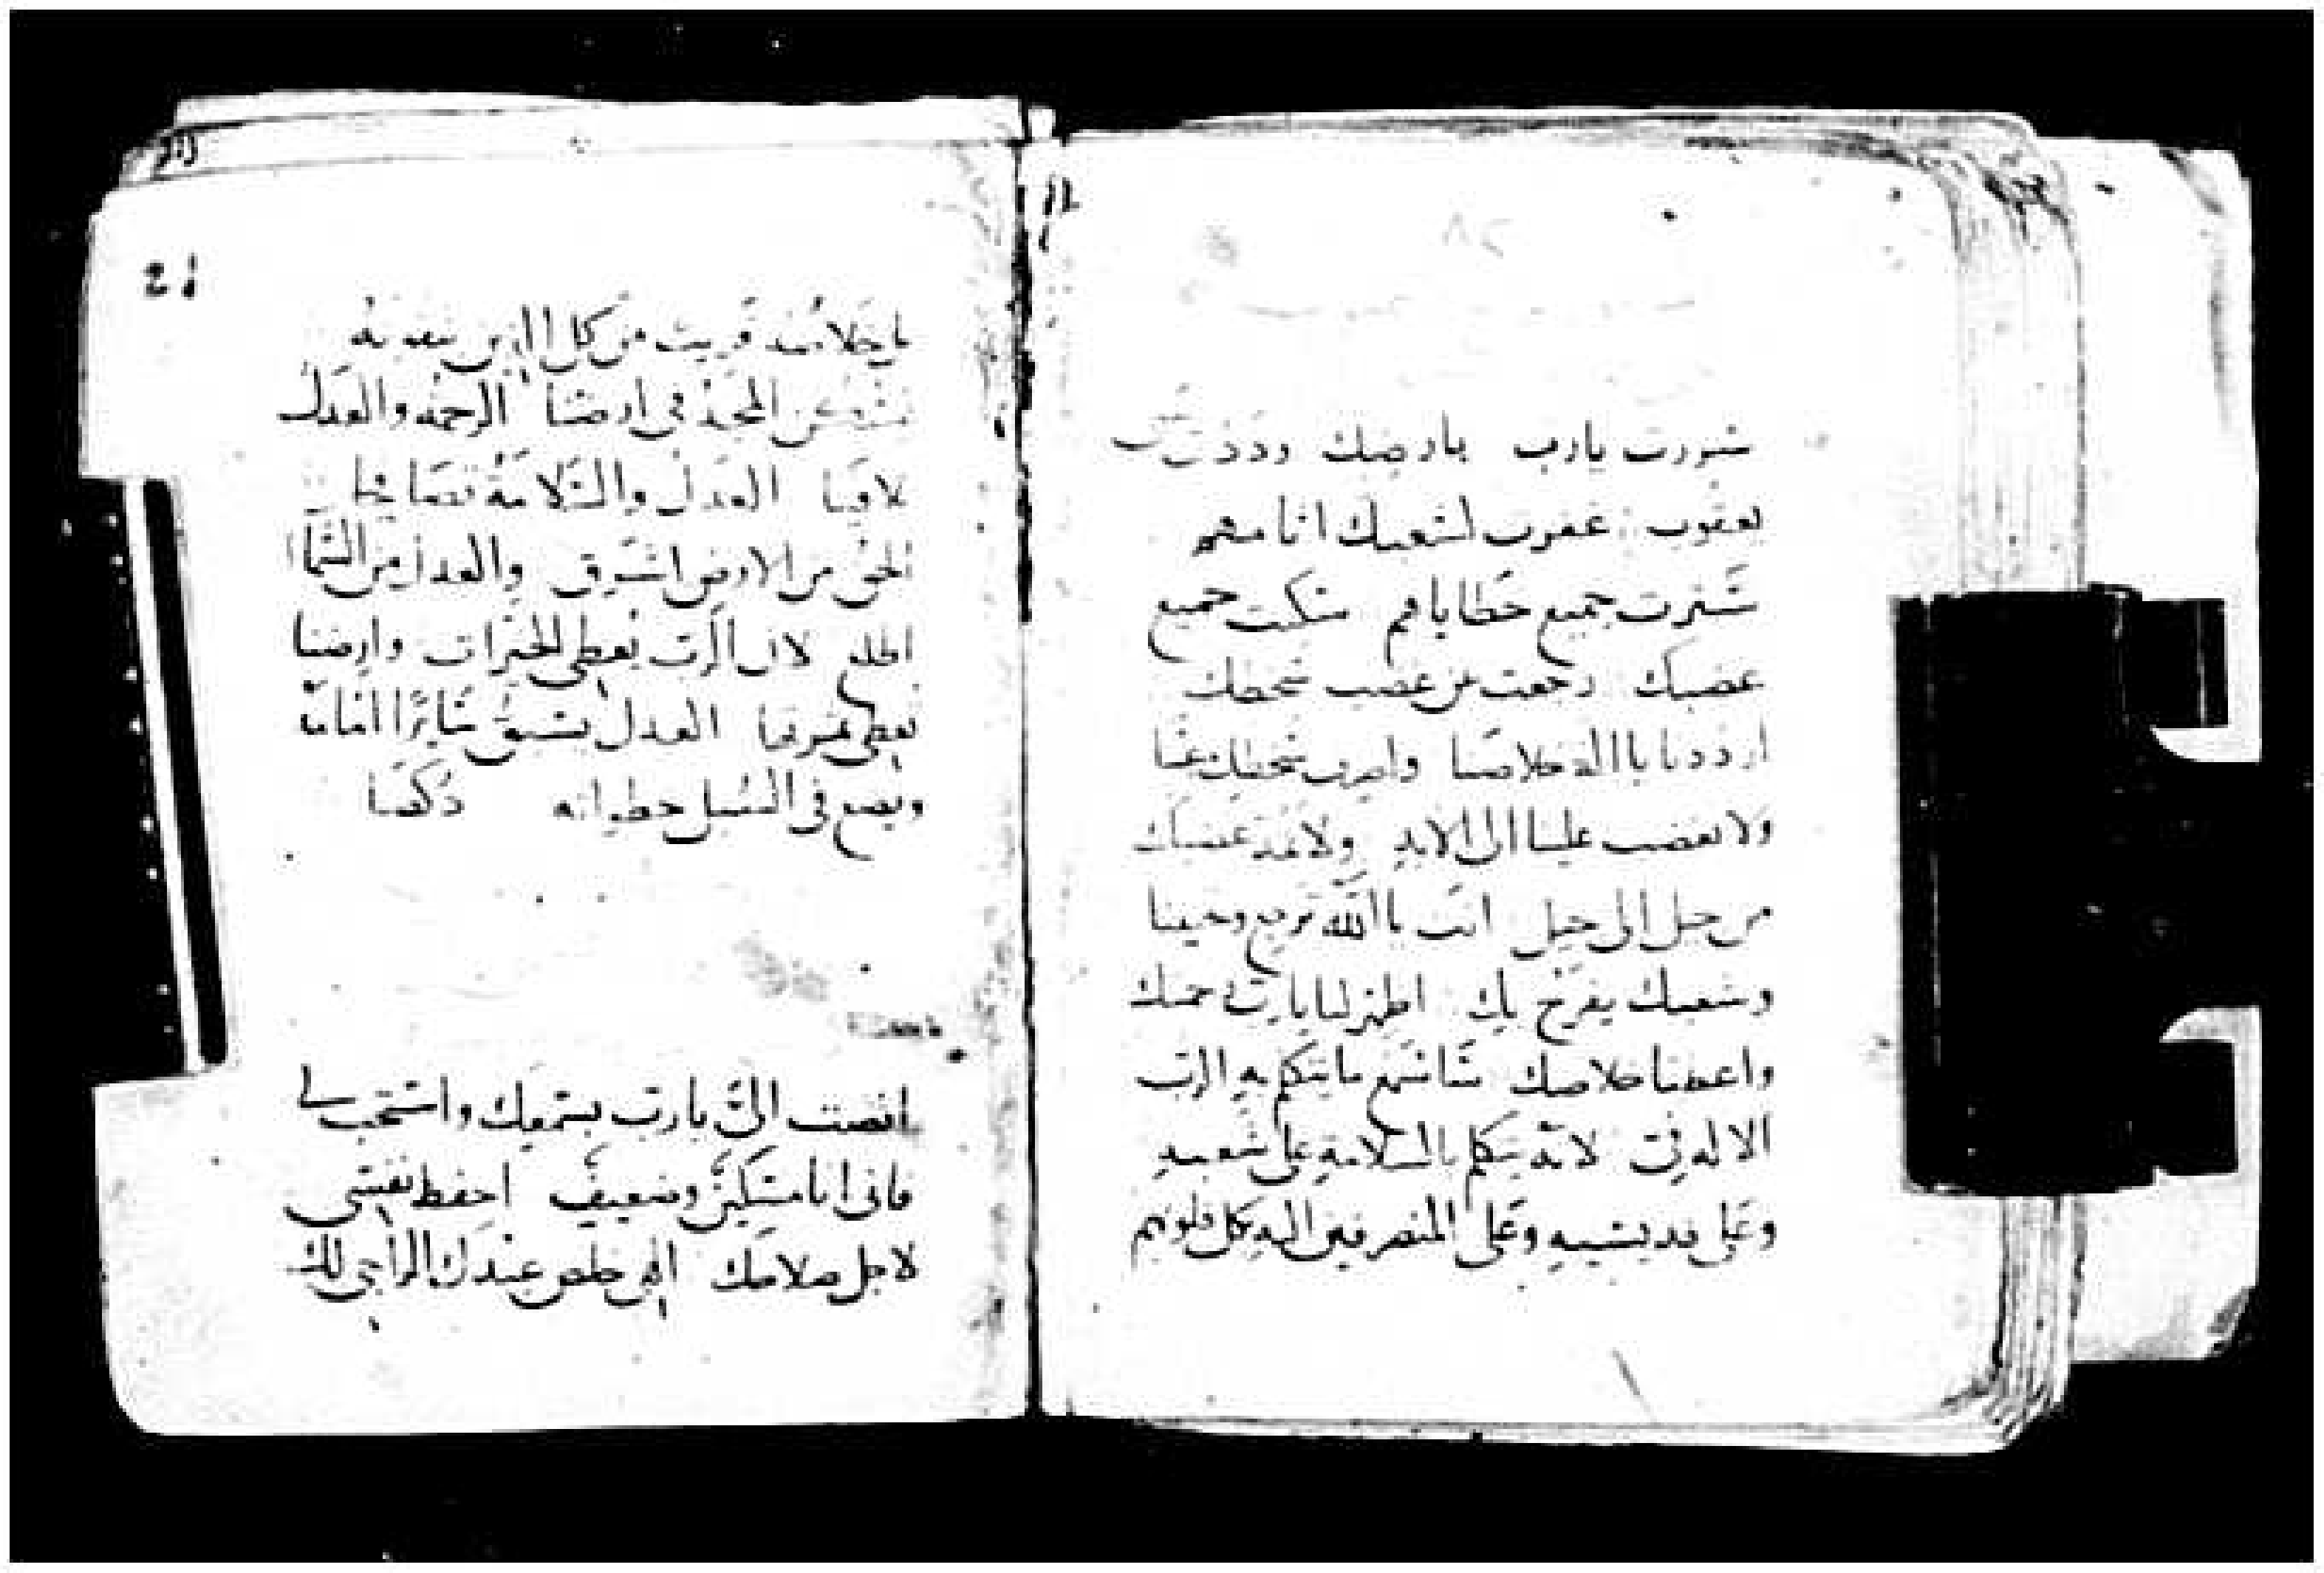 سررت يارب بارضك ورددت سبى
يعقوب غفرت لشعبك اثامهم
سترت جميع خطاياهم سكنت جميع
غضبك رجعت من غضب سخطك
ارددنا يا اله خلاصنا واصرف سخطك عنا
ولا تغضب علينا الى الابد ولا تمد غضبك
من جيل الى جيل انت يا الله ترجع وتحيينا
وشعبك يفرح بك اظهر لنا يارب رحمتك
واعطنا خلاصك سأسمع ما يتكلم به الرب
الاله فى لانه يتكلم بالسلامة على شعبه
وعلى قديسيه وعلى المنصرفين اليه بكل قلوبهم
خلاصه قريب من كل الذين يتقونه
ليسكن المجد فى ارضنا الرحمة والعدل
تلاقيا العدل والسلامة تصافحا
الحق من الارض اشرق والعدل من السماء
اطلع لان الرب يعطى الخيرات وارضنا
تعطى ثمرتها العدل يسبق سايرًا امامه
ويضع فى السبيل خطواته
انصت الىّ يارب بسمعك واستجب لى
فانى انا مسكين وضعيف احفظ نفسى
لاجل صلاحك الهى خلص عبدك الراجى لك